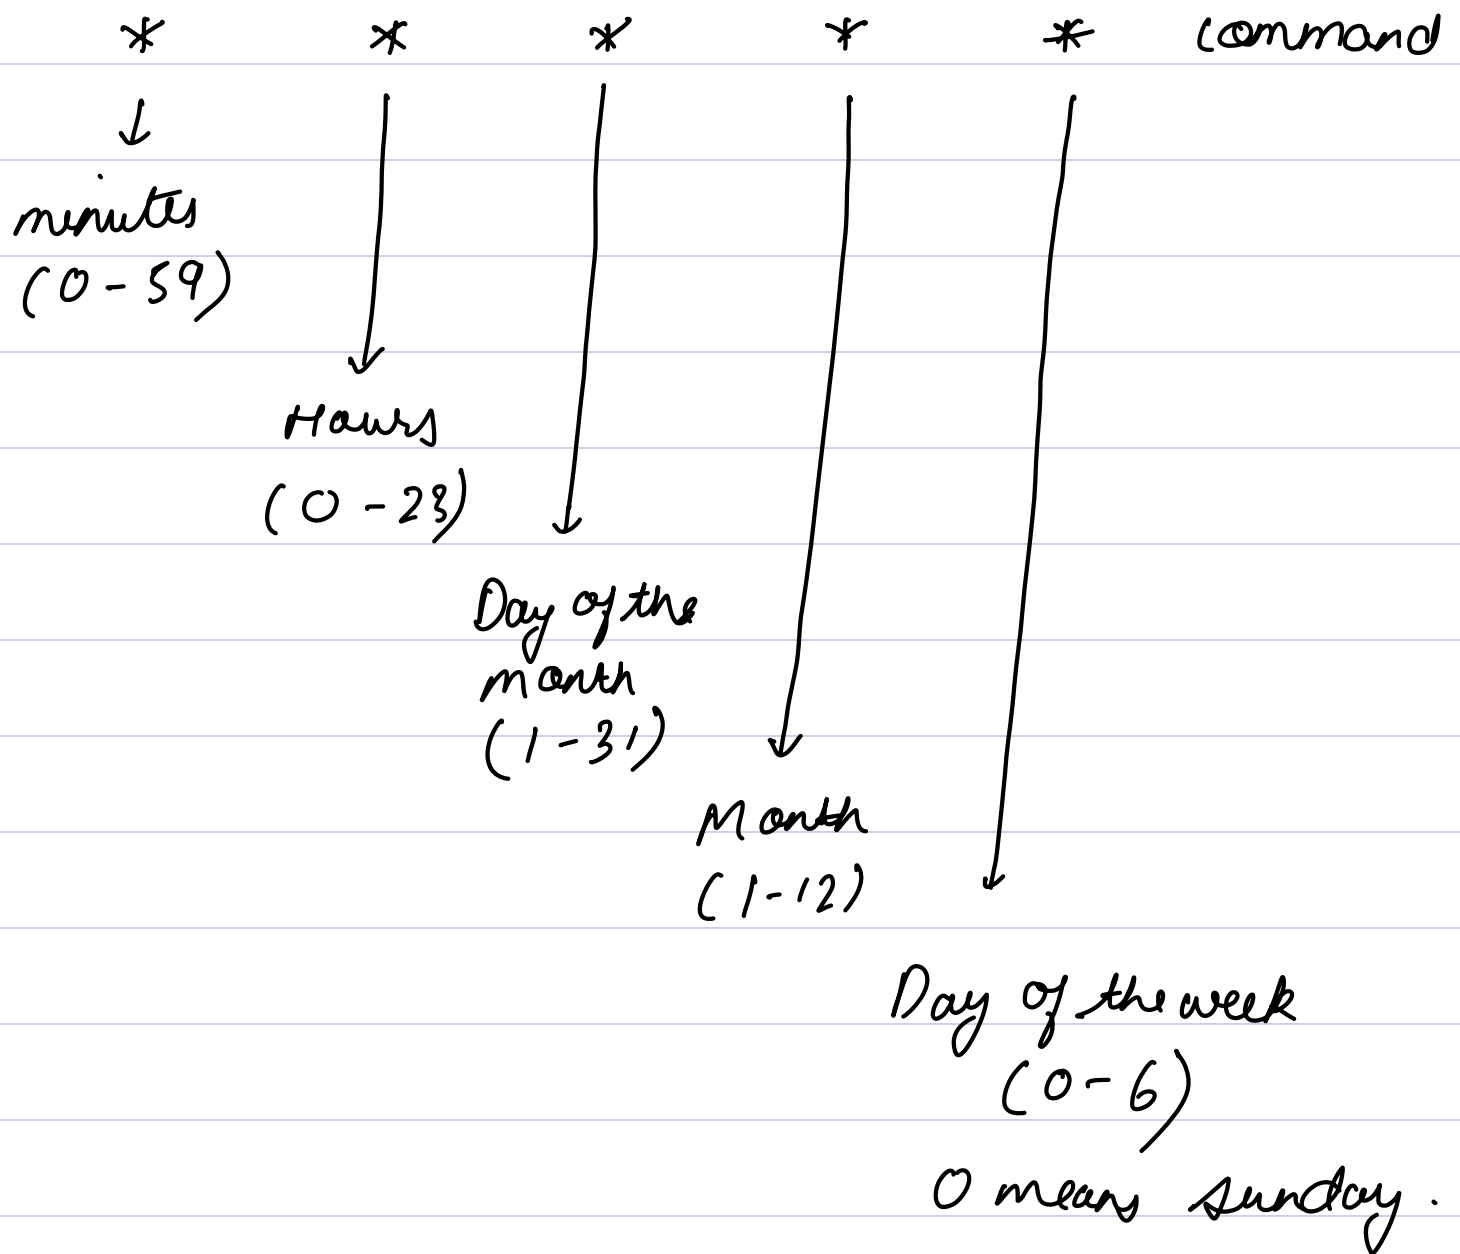 * * * * * command
minutes
(0 - 59)
Hours
(0 - 23)
Day of the
month
(1 - 31)
Month
(1 - 12)
Day of the week
(0 - 6)
0 means sunday.